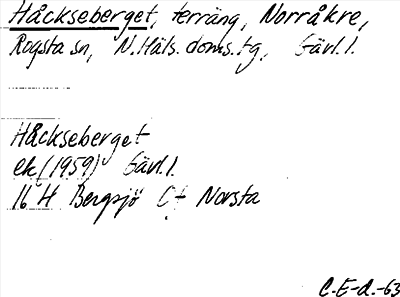 Håckseberget, terräng, Norråkre,
Rogsta sn, N. Häls. doms. tg, Gävl. l.
Håckseberget
ek (1959) Gävl. l.
16 H Bergsjö Norsta
C.E-d.-63